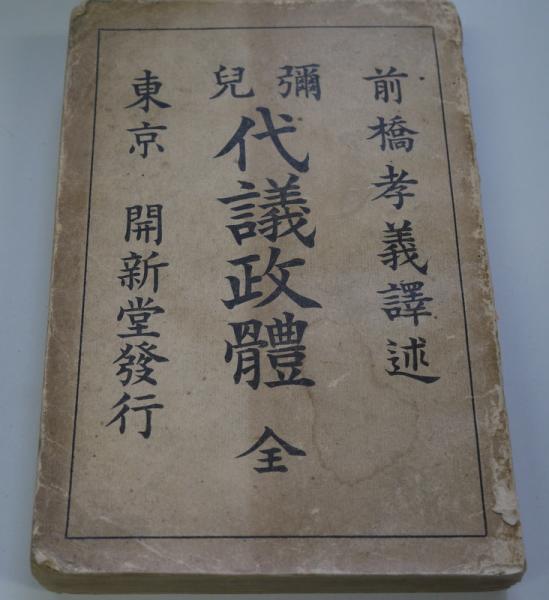 前橋孝義譯述
彌兒
代議政體 全
東京 開新堂發行